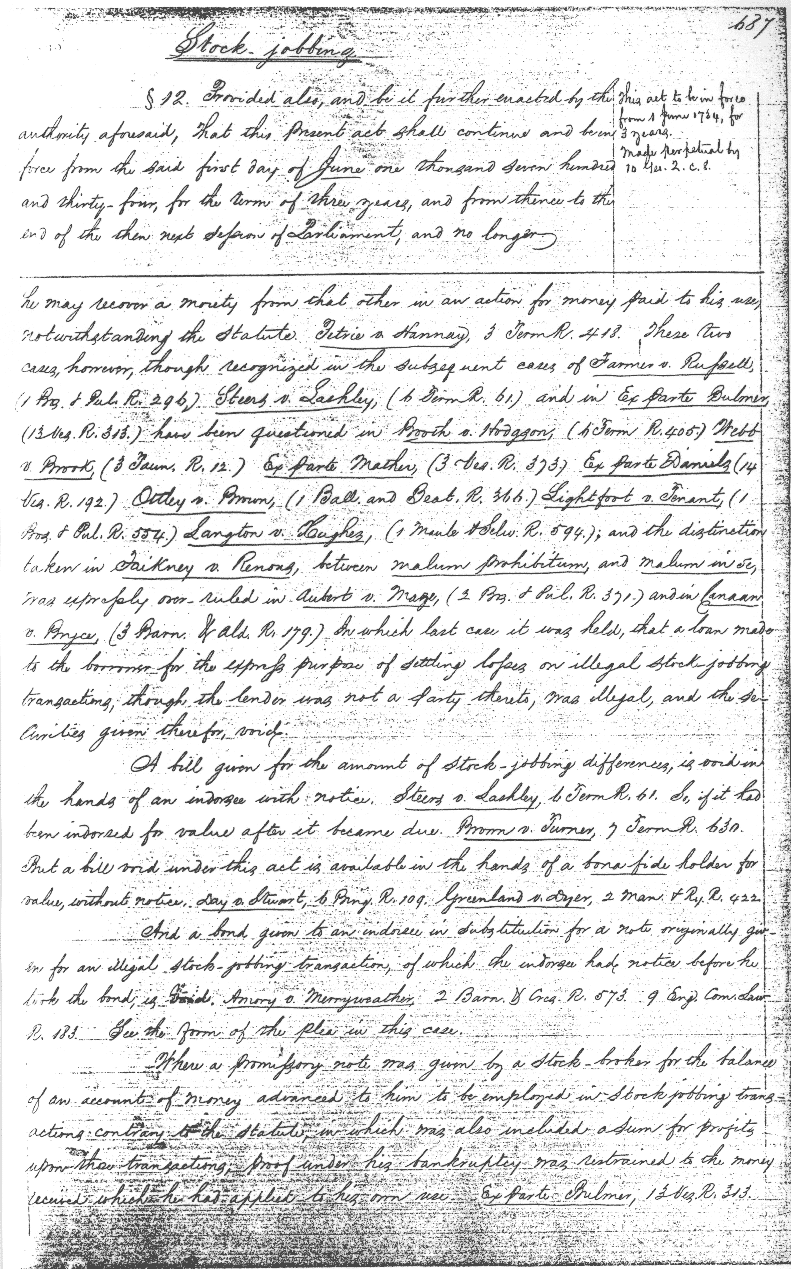 687
Stock-jobbing
§ 12. Provided also, and be it further enacted by the
authority aforesaid, That this Present act shall continue and be in
force from the said first day of June one thousand seven hundred
and thirty-four, for the term of three years, and from thence to the
end of the then next session of Parliament, and no longer
This act to be in force
from 1 June 1734, for
3 years.
Made perpetual by
10 Geo. 2. c. 8.
he may recover a moiety from that other in an action for money paid to his use,
notwithstanding the statute. Petrie v. Hannay, 3 Term R. 418. These two
cases, however, though recognized in the subsequent cases of Farmer v. Russell,
(1 Bos. & Pul. R. 296.) Steers v. Lashley, (6 Term R. 61.) and in Ex parte Bulmer,
(13 Ves. R. 313.) have been questioned in Booth v. Hodgson, (6 Term R. 405.) Webb
v. Brook, (3 Taun. R. 12.) Ex parte Mather, (3 Ves. R. 373.) Ex parte Daniels (14
Ves. R. 192.) Ottley v. Brown, (1 Ball. and Beat. R. 366.) Lightfoot v. Tenant, (1
Bos. & Pul. R. 554.) Langton v. Hughes, (1 Maule & Selw. R. 594.); and the distinction
taken in Faikney v. Renous, between malum prohibitum, and malum in se,
was expressly over-ruled in Aubert v. Maze, (2 Bos. & Pul. R. 371.) and in Canaan
v. Bryce, (3 Barn. & Ald. R. 179.) In which last case it was held, that a loan made
to the borrower for the express purpose of settling losses on illegal stock-jobbing
transactions, though the lender was not a party thereto, was illegal, and the se-
curities given therefor, void.
A bill given for the amount of stock-jobbing differences, is void in
the hands of an indorsee with notice. Steers v. Lashley, 6 Term R. 61. So, if it had
been indorsed for value after it became due. Brown v. Turner, 7 Term R. 630.
But a bill void under this act is available in the hands of a bona fide holder for
value, without notice. Day v. Stuart, 6 Bing. R. 109. Greenland v. Dyer, 2 Man. & Ry. R. 422
And a bond given to an indorsee in substitution for a note originally giv-
en for an illegal stock-jobbing transaction, of which the indorsee had notice before he
took the bond, is void. Amory v. Merryweather, 2 Barn. & Cres. R. 573. 9 Eng. Com. Law
R. 183. See the form of the plea in this case.
Where a promissory note was given by a stock-broker for the balance
of an account of money advanced to him to be employed in stock jobbing trans-
actions contrary to the statute, in which was also included a sum for profits
upon those transactions, proof under his bankruptcy was restrained to the money
received which he had applied to his own use. Ex parte Bulmer, 13 Ves. R. 313.